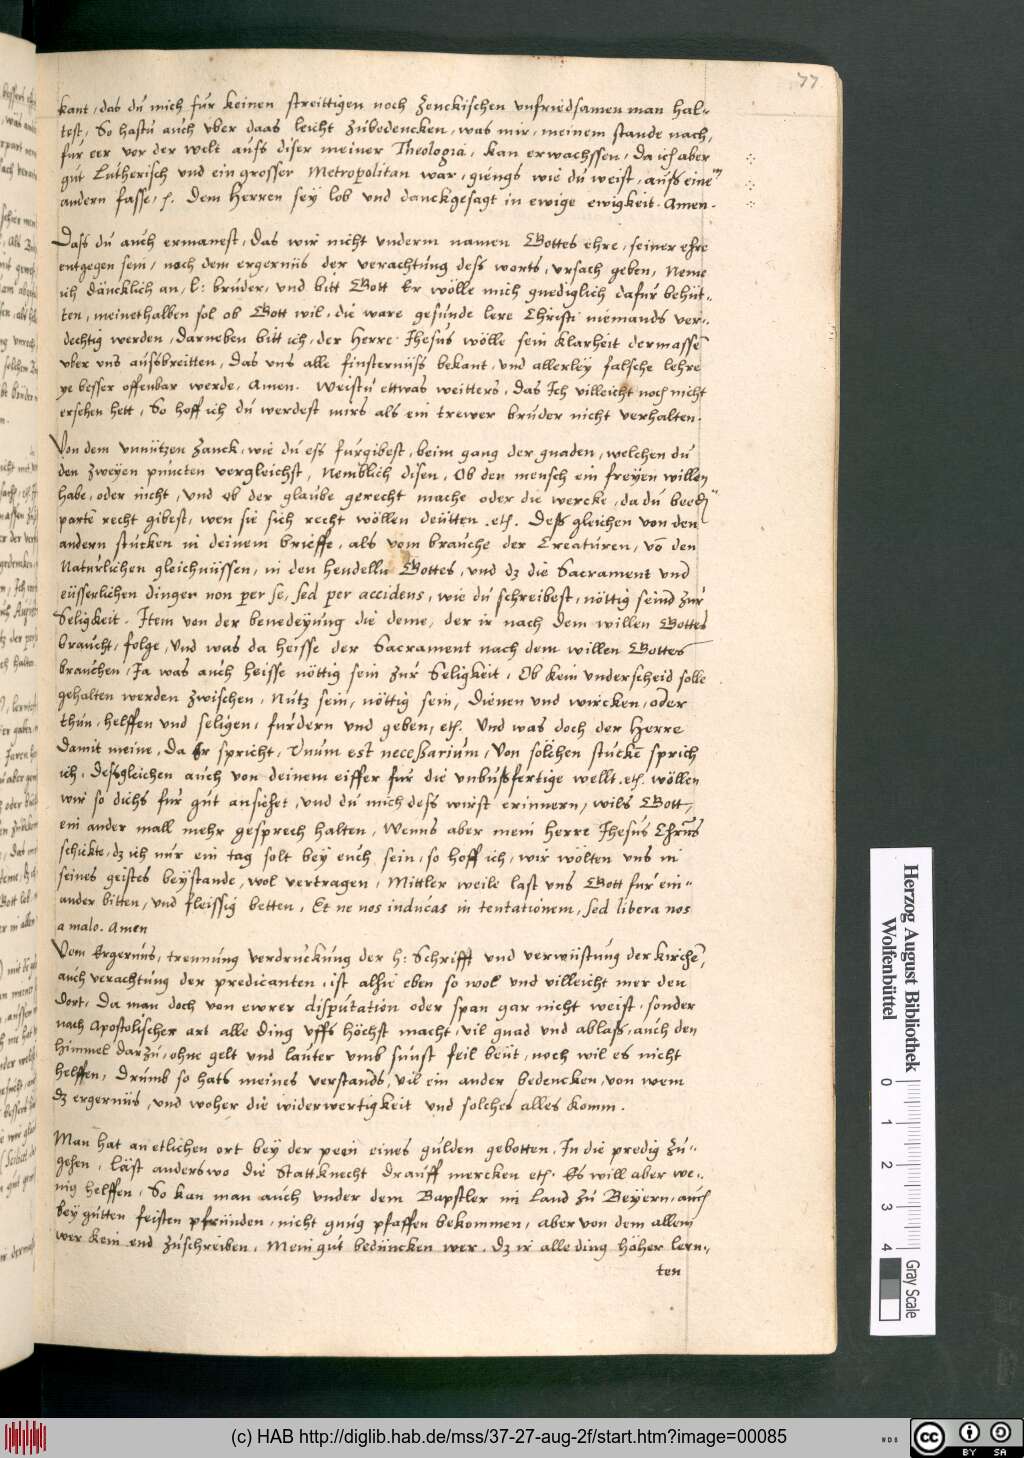 77
kant, das du mich fur keinen streittigen noch zenckischen unfriedsamen man hal„
test, So hastu auch vber daas leicht zubedencken, was mir, meinem stande nach,
fur eer vor der welt auss diser meiner Theologia, kan erwachssen, da ich aber
gut Lutherisch und ein grosser Metropolitan war, giengs wie du weist, auss eine„
andern fasse, Dem Herren sey lob und danckgesagt in ewige ewigkeit. Amen.
Dass du auch ermanest, das wir nicht underm namen Gottes ehre, seiner ehre
entgegen sein, noch dem ergernüs der verachtung dess worts, vrsach geben, Neme
ich däncklich an, l: bruder, und bitt Gott Er wölle mich gnediglich dafur behüt„
ten, meinethalben sol ob Gott wil, die ware gesunde lere Christi niemands ver„
dechtig werden, darneben bitt ich, der Herre Jhesus wölle sein klarheit dermassē
vber uns aussbreitten, das uns alle finsternüss bekant, und allerley falsche lehre
ye besser offenbar werde, Amen. Weistu ettwas weitters, das Ich villeicht noch nicht
ersehen hett, So hoff ich du werdest mirs als ein trewer bruder nicht verhalten.
Von dem unnützen zanck, wie du ess furgibest, beim gang der gnaden, welchen du
den zweyen puncten vergleichst, Nemblich disen, Ob der mensch ein freyen willen
habe, oder nicht, und ob der glaube gerecht mache oder die wercke, da du beed„
parte recht gibest, wen sie sich recht wöllen deütten. etc. Dess gleichen von den
andern stucken in deinem brieffe, als vom brauche der Creaturen, vō den
Naturlichen gleichnüssen, in den hendelln Gottes, und dz die Sacrament und
eüsserlichen dinger non per se, sed per accidens, wie du schreibest, nöttig seind zur
Seligkeit. Item von der benedeyung die deme, der ir nach dem willen Gottes
braucht, folge, und was da heisse der Sacrament nach dem willen Gottes
brauchen, Ja was auch heisse nöttig sein zur Seligkeit, Ob kein underscheid solle
gehalten werden zwischen, Nutz sein, nöttig sein, dienen und wircken, oder
thun, helffen und seligen, furdern und geben, etc. Und was doch der Herre
damit meine, da Er spricht, Unum est necessarium, Von sölchen stuckē sprich
ich, dessgleichen auch von deinem eiffer fur die unbussfertige wellt. etc. wöllen
wir so dichs fur gut ansihet, und du mich dess wirst erinnern, wils Gott,
ein ander mall mehr gesprech halten, Wenns aber mein Herre Jhesus Chrūs
schickte, dz ich nur ein tag solt bey euch sein, so hoff ich, wir wölten uns in
seines geistes beystande, wol vertragen, Mittler weile last uns Gott fur ein„
ander bitten, und fleissig betten, Et ne nos inducas in tentationem, sed libera nos
a malo. Amen
Vom Ergernüs, trennung verdruckung der h: Schrifft und verwüstung der kirchē,
auch verachtung der predicanten, ist alhie eben so wol und villeicht mer den
dort, da man doch von ewrer disputation oder span gar nicht weist, sonder
nach Apostolischer art alle ding uffs höchst macht, vil gnad und ablass, auch den
himmel darzu, ohne gelt und lauter umb sunst feil beut, noch wil es nicht
helffen, Drumb so hats meines verstands, vil ein ander bedencken, von wem
dz ergernüs, und woher die widerwertigkeit und solches alles komm.
Man hat an etlichen ort bey der peen eines gulden gebotten, In die predig zu„
gehen, läst anderswo die Stattknecht drauff mercken etc. Es will aber we„
nig helffen, So kan man auch under dem Bapstler in Land zu Beyern, auch
bey gutten feisten pfründen, nicht gnug pfaffen bekommen, aber von dem allem
wer kein end zuschreiben, Mein gut bedüncken wer, dz ir alle ding höher lern„
ten
Herzog August Bibliothek
Wolfenbüttel
0 1 2 3 4
Gray Scale
(c) HAB http://diglib.hab.de/mss/37-27-aug-2f/start.htm?image=00085
WDB
cc BY SA